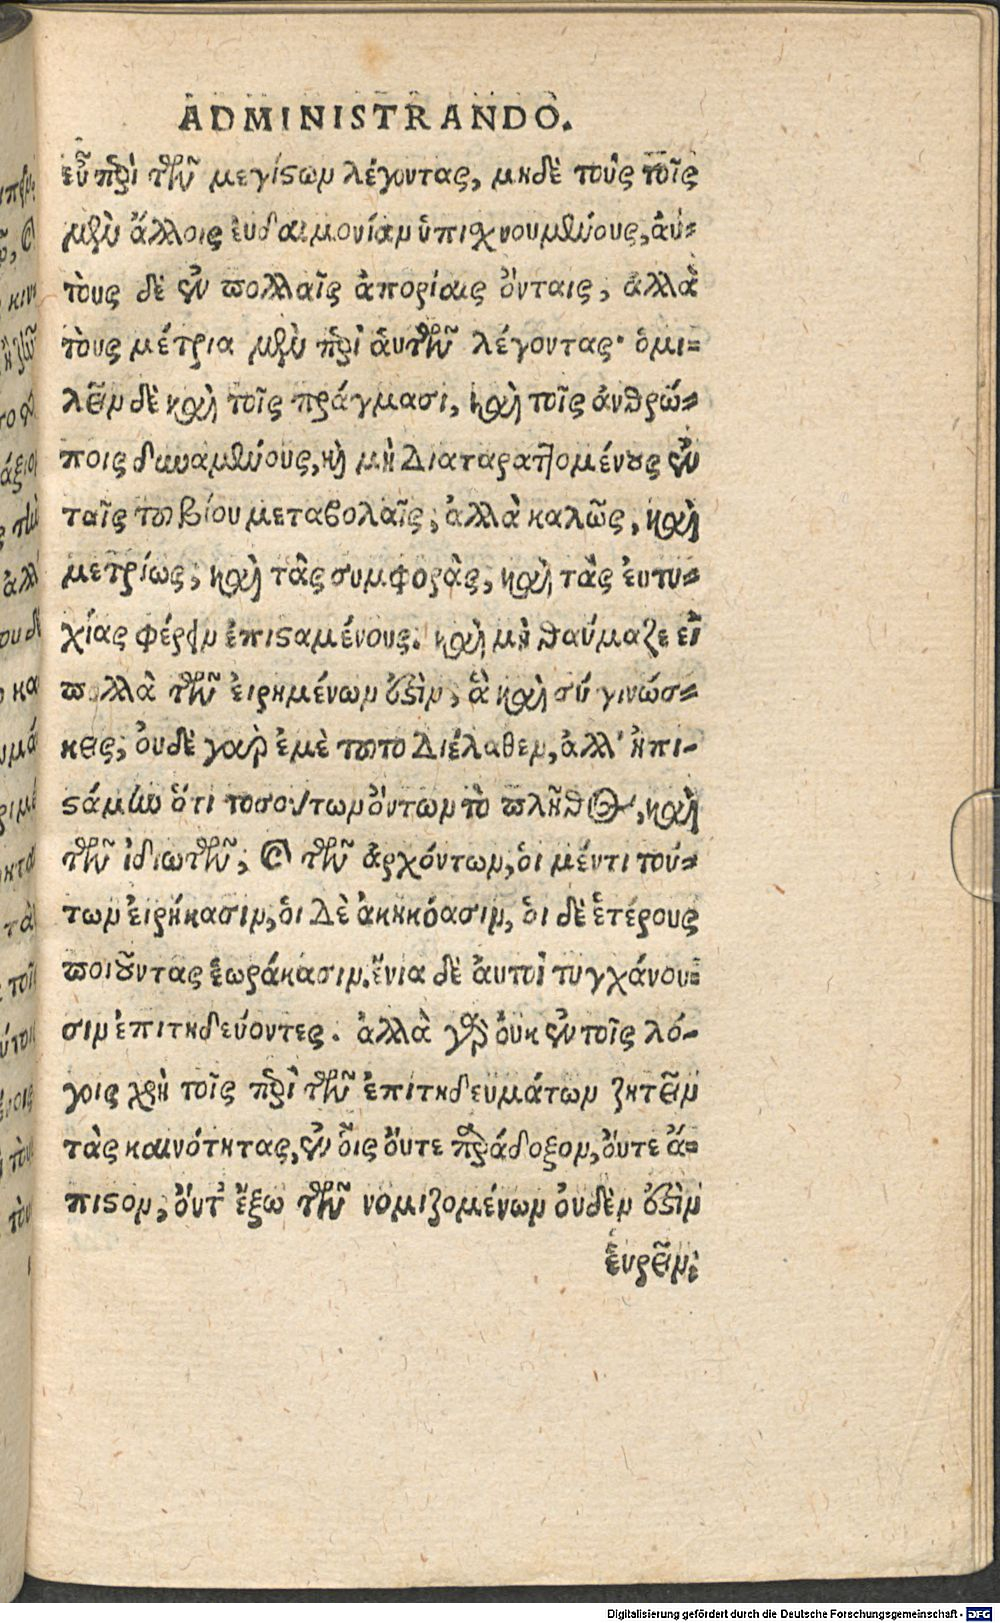 ADMINISTRANDO.
εὖ περὶ τῶν μεγίστων λέγοντας, μηδὲ τοὺς τοῖς
μὲν ἄλλοις ἐυδαιμονίαν ὑπιχνουμένους, ἀυ-
τοὺς δὲ ἐν πολλαῖς ἀπορίαις ὄνταις, ἀλλὰ
τοὺς μέτρια μὲν περὶ ἁυτῶν λέγοντας· ὁμι-
λεῖν δὲ καὶ τοῖς πράγμασι, καὶ τοῖς ἀνθρώ-
ποις δυναμένους, καὶ μὴ διαταραττομένους ἐν
ταῖς τοῦ βίου μεταβολαῖς, ἀλλὰ καλῶς, καὶ
μετρίως, καὶ τὰς συμφορὰς, καὶ τὰς ἐυτυ-
χίας φέρειν ἐπισταμένους. καὶ μὴ θαύμαζε εἰ
πολλὰ τῶν ἐιρημένων ἐστὶν, ἃ καὶ σύ γινώσ-
κεις, ὀυδὲ γαρ ἐμὲ τοῦτο διέλαθεν, ἀλλ' ἠπι-
στάμην ὅτι τοσούτων ὄντων τὸ πλῆθος, καὶ
τῶν ἰδιωτῶν, καὶ τῶν ἀρχόντων, ὁι μέντι τού-
των ἐιρήκασιν, ὁι δὲ ἀκηκόασιν, ὁι δὲ ἑτέρους
ποιοῦντας ἑωράκασιν. ἔνια δὲ ἀυτοὶ τυγχάνου-
σιν ἐπιτηδεύοντες. ἀλλὰ γὰρ ὀυκ ἐν τοῖς λό-
γοις χρὴ τοῖς περὶ τῶν ἐπιτηδευμάτων ζητεῖν
τὰς καινότητας, ἐν ὃις ὄυτε παράδοξον, ὄυτε ἄ-
πιστον, ὄυτ' ἔξω τῶν νομιζομένων ὀυδὲν ἐστὶν
ἑυρεῖν,
Digitalisierung gefördert durch die Deutsche Forschungsgemeinschaft - DFG